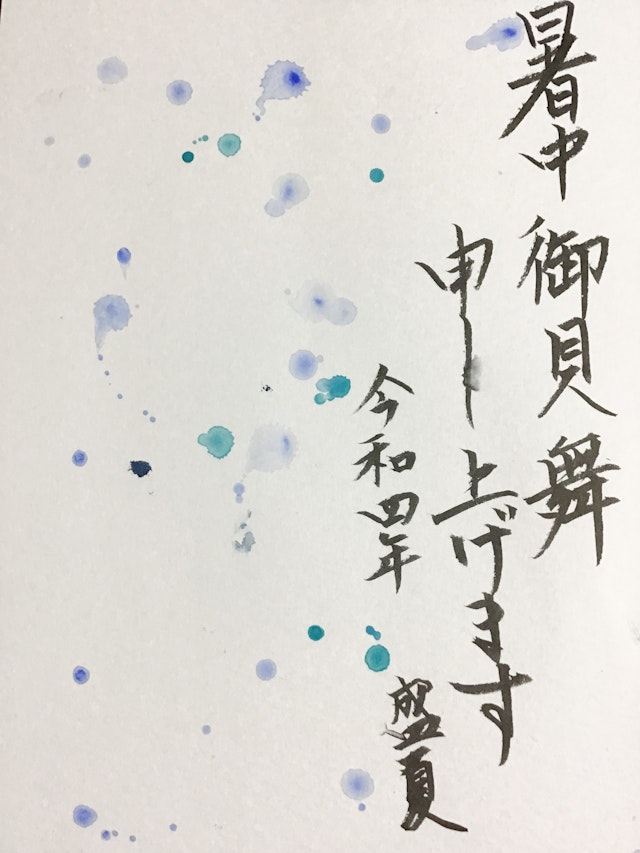 暑中御見舞
申し上げます
令和四年
盛夏